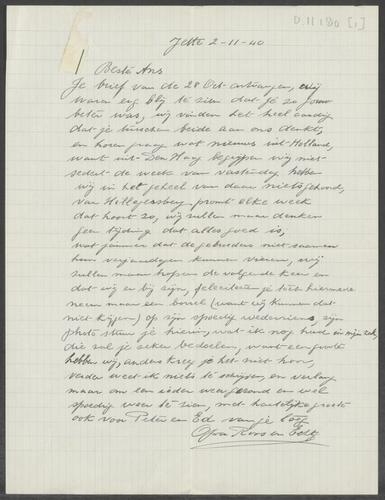 D 11180 [1]
Jette 2-11-40
Beste Ans
Je brief van de 28 Oct. ontvangen, wij
waren erg blij te zien dat je zo jouw
beter was, wij vinden het heel aardig
dat je tusschen beide aan ons denkt,
en horen graag wat nieuws uit Holland,
want uit Den Haag begrijpen wij niet
sedert de week van
wij in het geheel van daar niets gehoord,
van Hillegersberg promt elke week
dat hoort zo, wij zullen maar denken
geen tijding dat alles goed is,
wat jammer dat de gebroeders niet samen
hun verjaardagen kunnen vieren, wij
zullen maar hopen de volgende keer en
dat wij er bij zijn, feliciteer je toch hiermede
neem maar een borrel (want wij kunnen dat
niet krijgen) op zijn spoedig wederzien zijn
photo stuur je hierin, wat ik nog had in mijn zak,
die zul je zeker bedoelen, want een groote
hebben wij, anders kreeg je het niet hoor
verder weet ik niets te schrijven en verlang
maar om een ieder weer gezond en wel
spoedig weer te zien, met hartelijke groete
ook van Peter en Ed van je toeg
Opa Koos en